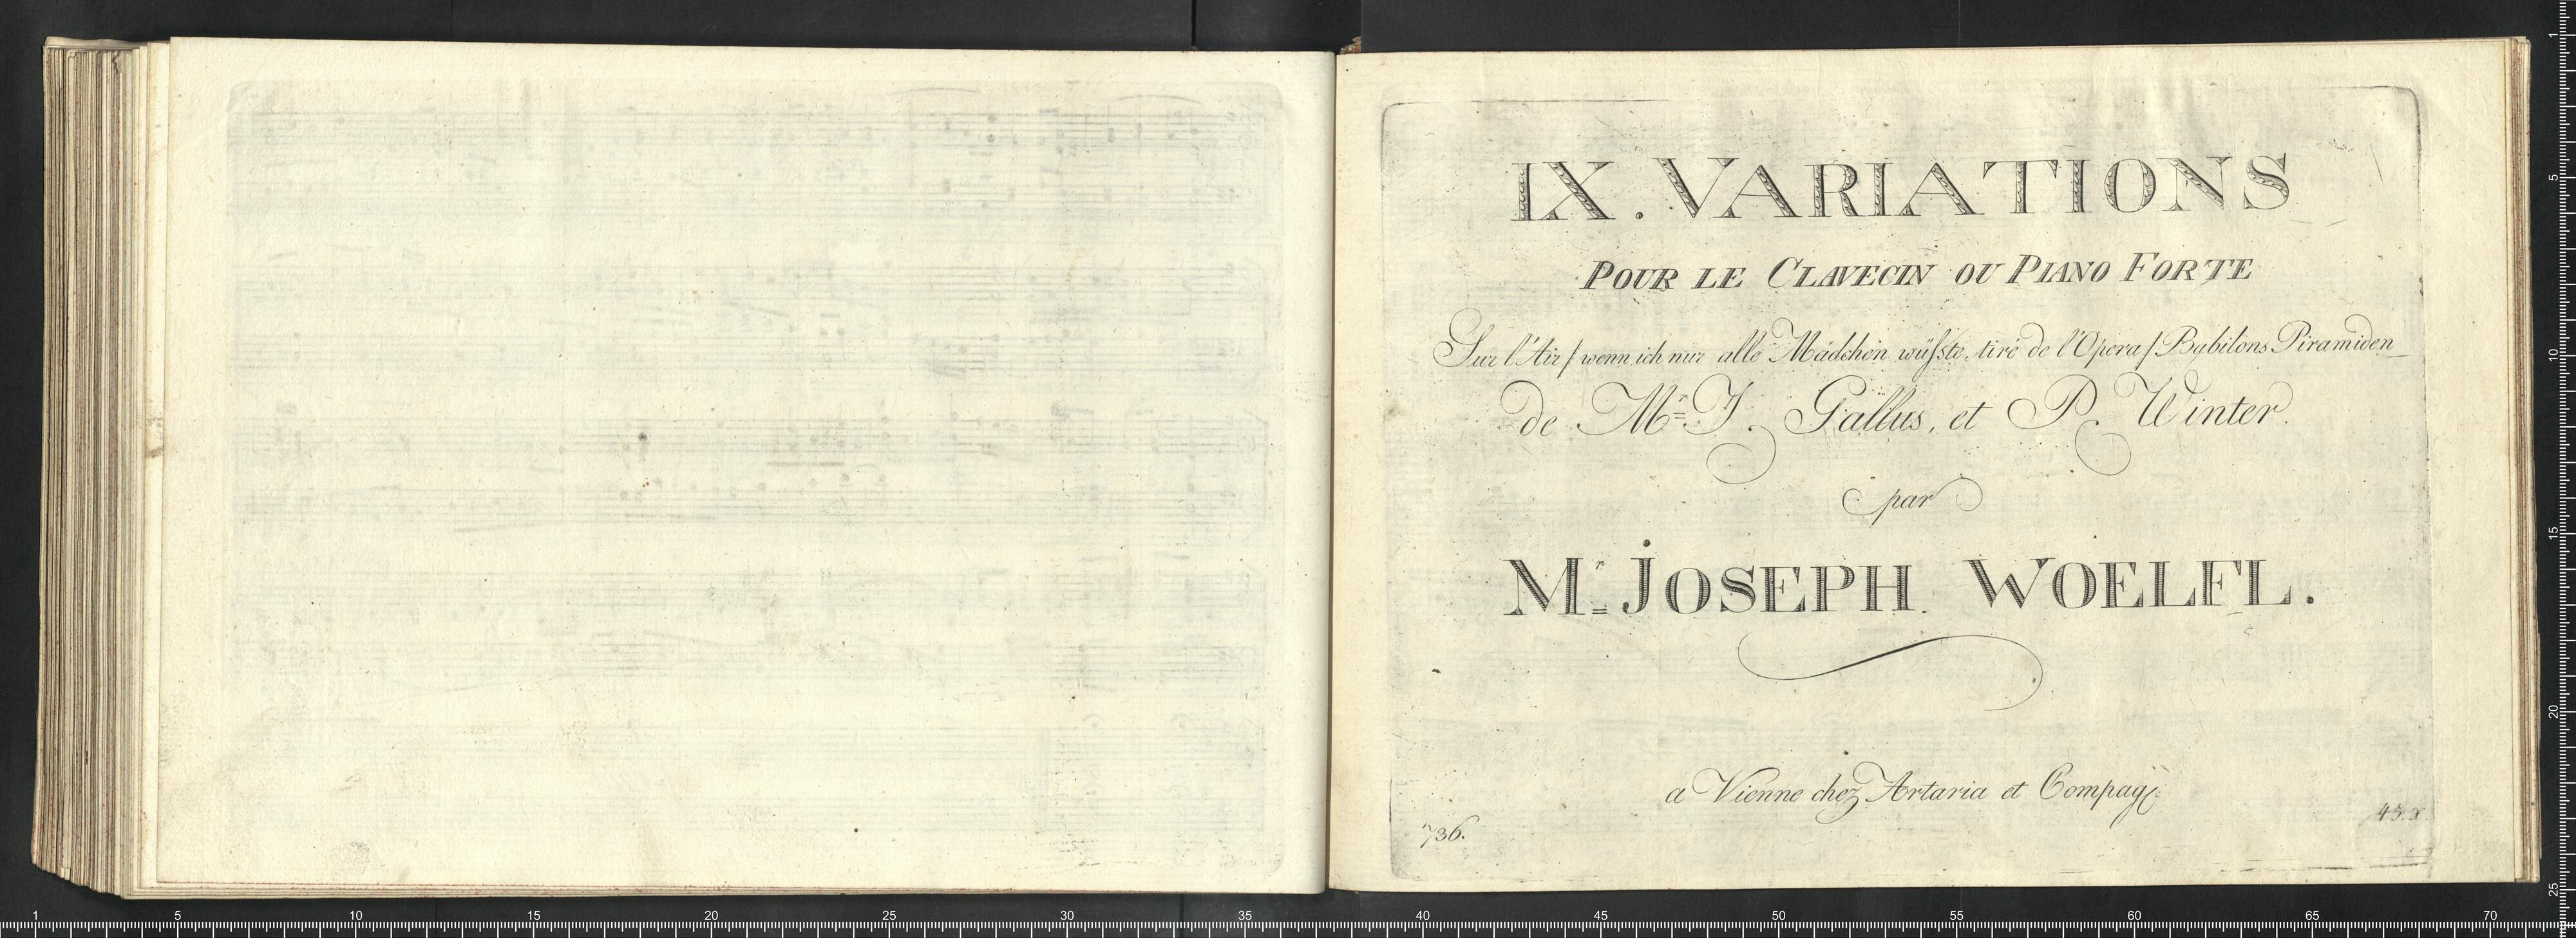 IX. VARIATIONS
POUR LE CLAVECIN OU PIANO FORTE
Sur l'Air / wenn ich nur alle Mädchen wüſste, tiré de l'Opera / Babilons Piramiden
de Mr. J. Gallus, et P. Winter.
par
Mr. JOSEPH WOELFL.
a Vienne chez Artaria et Compag:
736.
45. x.
1 5 10 15 20 25 30 35 40 45 50 55 60 65 70
1 5 10 15 20 25